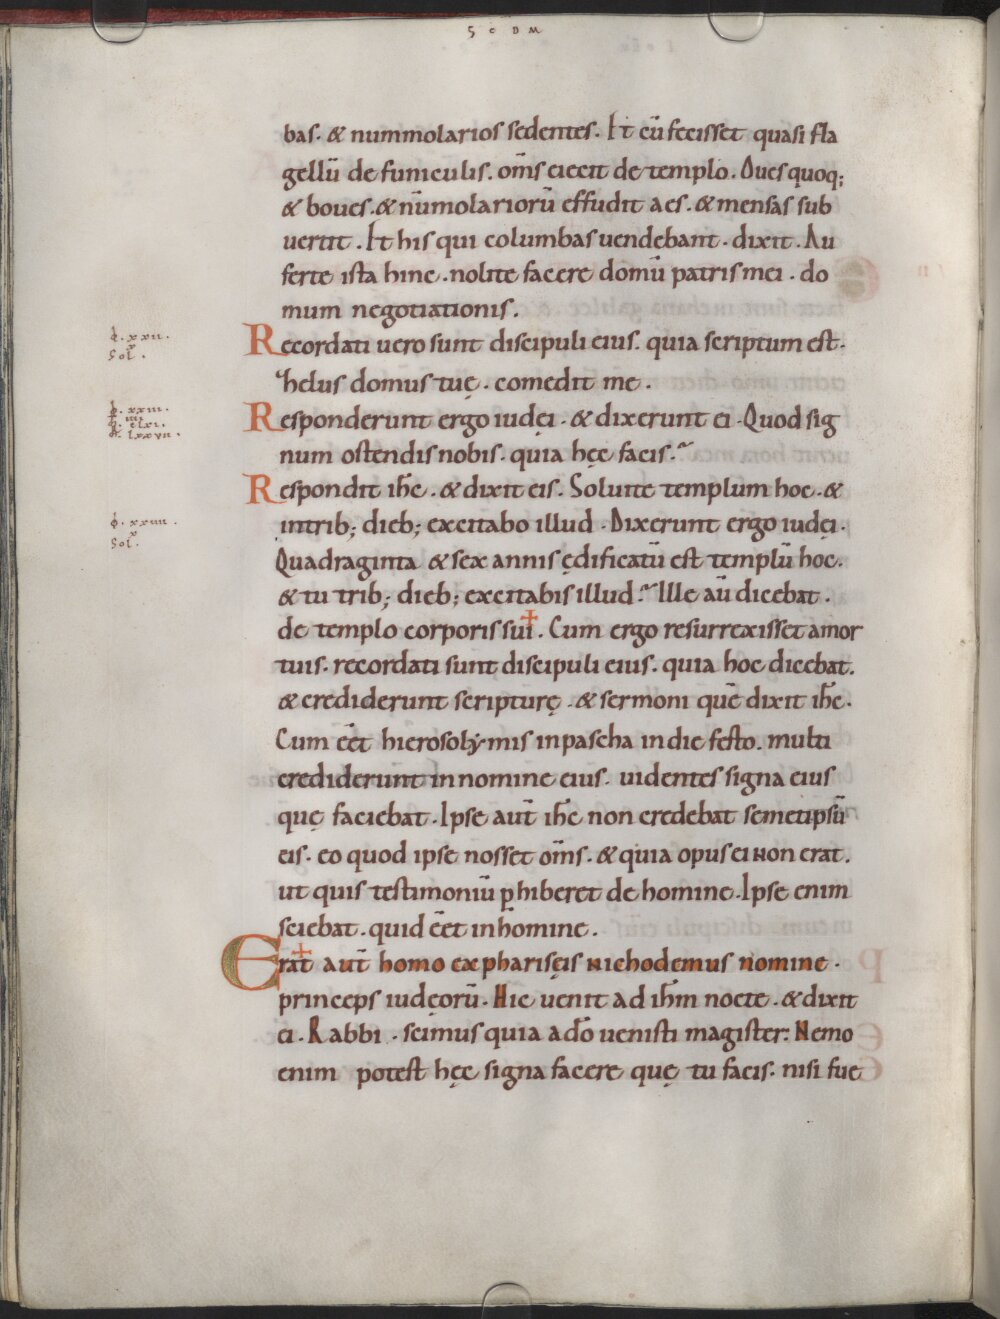 S C D M
bas. & nummolarios sedentes. Et cū fecisset quasi fla
gellū de funiculis. om̄s eiecit de templo. Oues quoq;
& boues. & nūmolariorū effudit aes. & mensas sub
uertit. Et his qui columbas uendebant. dixit. Au
ferte ista hinc. nolite facere domū patris mei. do
mum negotiationis.
ɸ. xxii.
Sol̄.
Recordati uero sunt discipuli eius. quia scriptum est.
helus domus tuę. comedit me.
xxiii.
iiii.
clxi.
lxxvii.
Responderunt ergo iudęi. & dixerunt ei. Quod sig
num ostendis nobis. quia hęc facis.
Respondit ih̄c. & dixit eis. Soluite templum hoc. &
ɸ. xxiiii.
Sol̄.
intrib; dieb; excitabo illud. Dixerunt ergo iudęi.
Quadraginta & sex annis ędificatū est templū hoc.
& tu trib; dieb; excitabis illud. Ille aū dicebat.
de templo corporis sui. Cum ergo resurrexisset amor
tuis. recordati sunt discipuli eius. quia hoc dicebat.
& crediderunt scripturę. & sermoni quē dixit ih̄c.
Cum ēet hierosolẏmis inpascha indie festo. multi
crediderunt innomine eius. uidentes signa eius
quę faciebat. Ipse aut̄ ih̄c non credebat semetipsū
eis. eo quod ipse nosset om̄s. & quia opus ei non erat.
ut quis testimoniū ꝑhiberet de homine. Ipse enim
sciebat. quid ēet inhomine.
Erat aut̄ homo ex pharisęis nichodemus nomine.
princeps iudęorū. Hic uenit ad ih̄m nocte. & dixit
ei. Rabbi. scimus quia ad̄o uenisti magister: Nemo
enim potest hęc signa facere quę tu facis. nisi fue